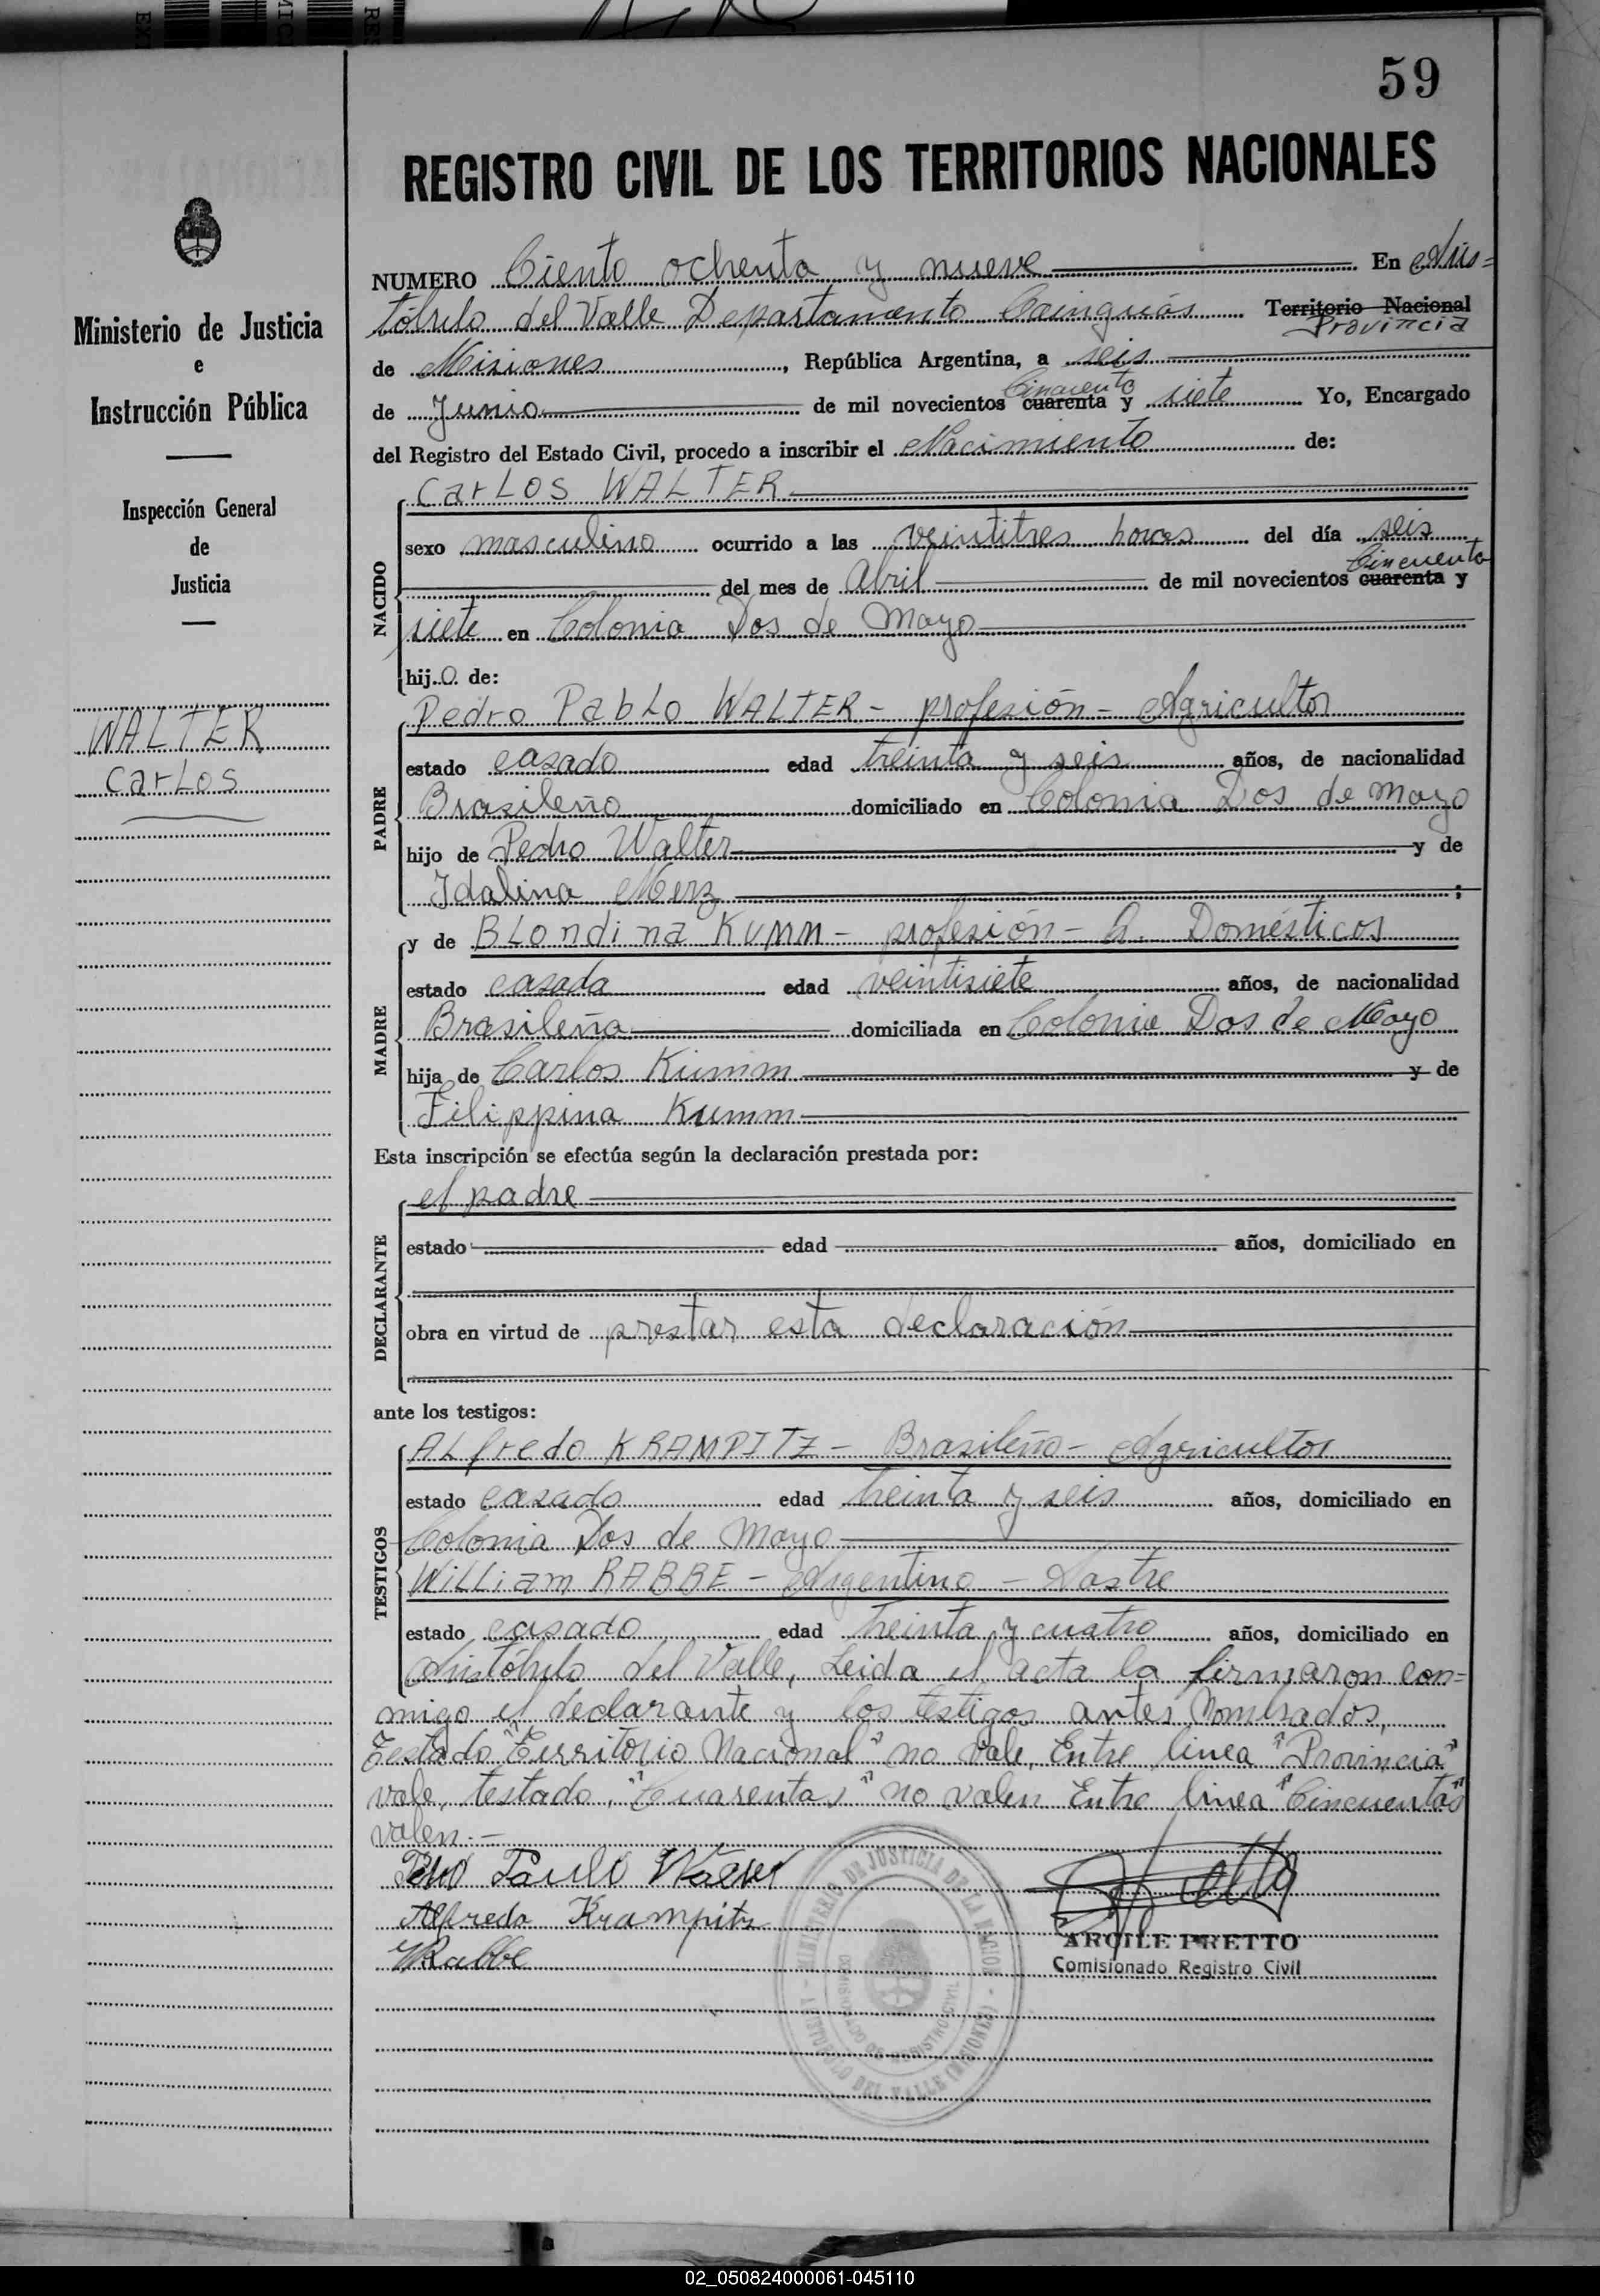 59
REGISTRO CIVIL DE LOS TERRITORIOS NACIONALES
Ministerio de Justicia
e
Instrucción Pública
Inspección General
de
Justicia
WALTER
Carlos
NUMERO Ciento ochenta y nueve En Aris=
tóbulo del Valle Departamento Cainguás Territorio Nacional
Provincia
de Misiones, República Argentina, a seis
Cincuenta
de Junio de mil novecientos cuarenta y siete Yo, Encargado
del Registro del Estado Civil, procedo a inscribir el Nacimiento de:
NACIDO
Carlos WALTER
sexo masculino ocurrido a las veintitres horas del día seis
Cincuenta
del mes de Abril de mil novecientos cuarenta y
siete en Colonia Dos de Mayo
hijo de:
PADRE
Pedro Pablo WALTER - profesión - Agricultor
estado casado edad treinta y seis años, de nacionalidad
Brasileño domiciliado en Colonia Dos de Mayo
hijo de Pedro Walter y de
Idalina Merz ;
MADRE
y de Blondina KUMM - profesión - Q. Domésticos
estado casada edad veintisiete años, de nacionalidad
Brasileña domiciliada en Colonia Dos de Mayo
hija de Carlos Kumm y de
Filippina Kumm
Esta inscripción se efectúa según la declaración prestada por:
DECLARANTE
el padre
estado edad años, domiciliado en
obra en virtud de prestar esta declaración
ante los testigos:
TESTIGOS
Alfredo KRAMPITZ - Brasileño - Agricultor
estado casado edad treinta y seis años, domiciliado en
Colonia Dos de Mayo
William RABBE - Argentino - Sastre
estado casado edad treinta y cuatro años, domiciliado en
Aristóbulo del Valle, Leida el acta la firmaron con=
migo el declarante y los testigos antes Nombrados,
Testado "Territorio Nacional" no vale, Entre linea "Provincia"
vale, testado, "Cuarentas" no valen Entre linea "Cincuentas"
valen.-
Paulo
Alfredo Krampitz
WRabbe
ARGILE PRETTO
Comisionado Registro Civil
MINISTERIO DE JUSTICIA DE LA NACION
ARISTOBULO DEL VALLE (MISIONES)
COMISIONADO DE REGISTRO CIVIL
02_050824000061-045110